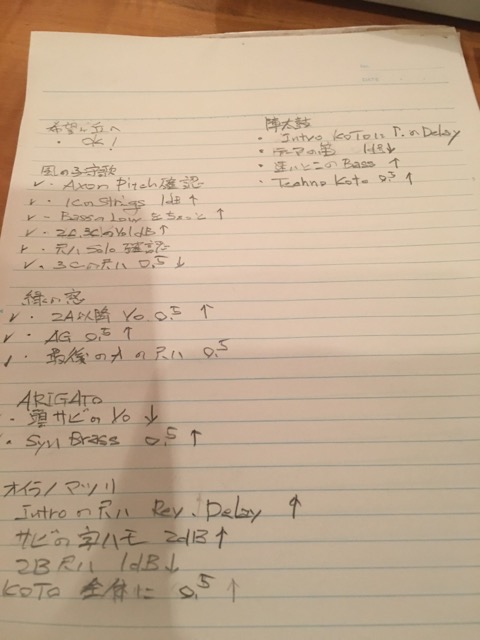 希望の丘へ
・OK!
風の子守歌
✓・Axon Pitch 確認
✓・1Cのstrings 1dB↑
✓・BassのLowをちょっと↑
✓・2A.3CのVo 1dB↑
✓・尺八 Solo 確認
✓・3Cの尺八 0.5↓
緑の窓
✓・2A以降 Vo 0.5↑
✓・AG 0.5↑
✓・最後のAの尺八 0.5
ARIGATO
・頭サビのVo↓
・Syn Brass 0.5↑
オイラノマツリ
Introの尺八 Rev.Delay↑
サビの字ハモ 2dB↑
2B尺八 1dB↓
KOTO 全体に 0.5↑
陣太鼓
・Intro KOTOに のDelay
・テーマの笛 1dB↓
・速いとこのBass↑
・Techno Koto 0.5↑